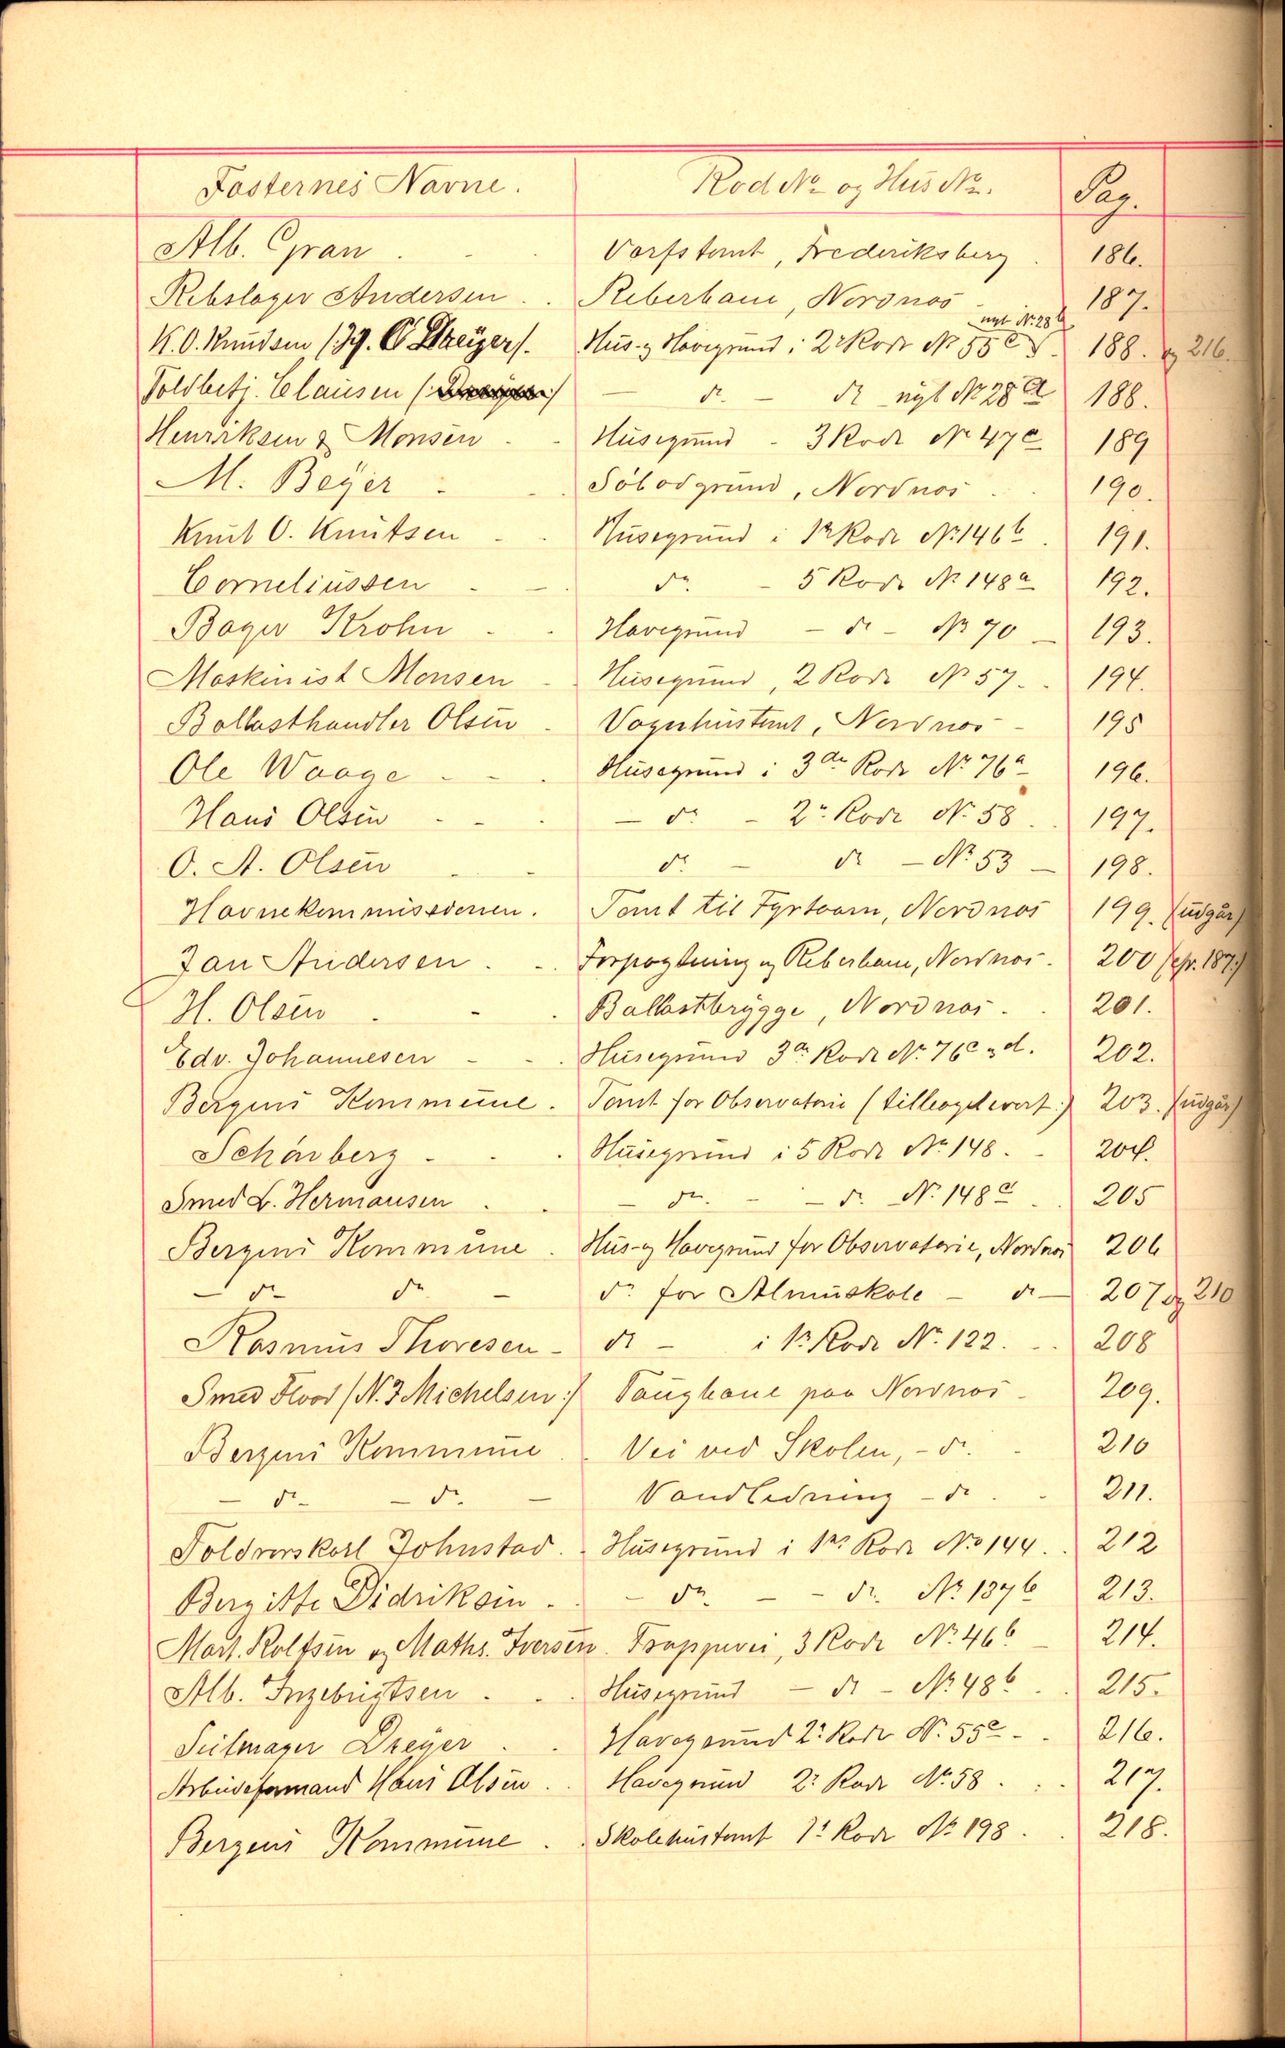 Fasternes Navne. Rod No og Hus No. Pag.
Alb. Gran . - . Verfstomt, Frederiksberg . 186.
Rebslager Andersen . . Reberbane, Nordnæs - 187.
nyt No. 28 b
K. O. Knudsen /: J. C. Dreyer :/. Hus- og Havegrund i 2' Rode No 55 c . 188. og 216.
Toldbetj. Clausen ( ) - do - do nyt No 28 a 188.
Henriksen & Monsen . - Husegrund - 3 Rode No 47 c 189
M. Beyer - . Söbodgrund, Nordnæs . . 190.
Knut O. Knutsen - . Husegrund i 1ste Rode No 146 b . 191.
Corneliussen - - . do - 5 Rode No 148 a 192.
Bager Krohn - . Havegrund - do - No 70 - 193.
Maskinist Monsen - Husegrund, 2 Rode No 57. . 194.
Ballasthandler Olsen . Vognhustomt, Nordnæs - 195
Ole Waage - - . Husegrund i 3die Rode No 76 a 196.
Hans Olsen - - . - do - 2' Rode No 58 . . 197.
O. A. Olsen . - - do - do - No 53 - 198.
Havnekommissionen. Tomt til Fyrtaarn, Nordnæs 199. /udgår/
Jan Andersen . - . Forpagtning og Reberbane, Nordnæs - 200 /cfr. 187/
H. Olsen . - . Ballastbrygge, Nordnæs . . 201.
Edv. Johannesen - - . Husegrund 3die Rode No 76 c og d. 202.
Bergens Kommune . Tomt for Observatorie (tilbagelevert :) 203. /udgår/
Schönberg - . . Husegrund i 5 Rode No 148. - 204.
Smed L. Hermansen . . - do - - do No 148 c . 205
Bergens Kommune . Hus- og Havegrund for Observatorie, Nordnæs 206
- do do - do for Almuskole - do - 207 og 210
Rasmus Thoresen - do - i 1ste Rode No. 122. . - 208
Smed Flood /: N. J Michelsen :/ Taugbane paa Nordnæs - 209.
Bergens Kommune . Vei ved Skolen, - do. - 210
- do - - do. - Vandledning - do . - 211.
Toldroerskarl Johnstad . . Husegrund i 1ste Rode No 144 . . 212
Bergitte Didriksen . . - do. - - do. No. 137 b 213.
Mart. Rolfsen og Maths. Iversen . Trappevei, 3 Rode No. 46 b - 214.
Alb. Ingebrigtsen . . . Husegrund - do - No. 48 b . . 215.
Seilmager Dreyer . . Havegrund 2' Rode No. 55 c - . 216.
Arbeidsformand Hans Olsen . . Havegrund 2' Rode No. 58 . . . 217.
Bergens Kommune . . Skolehustomt 1' Rode No 198 . . 218.